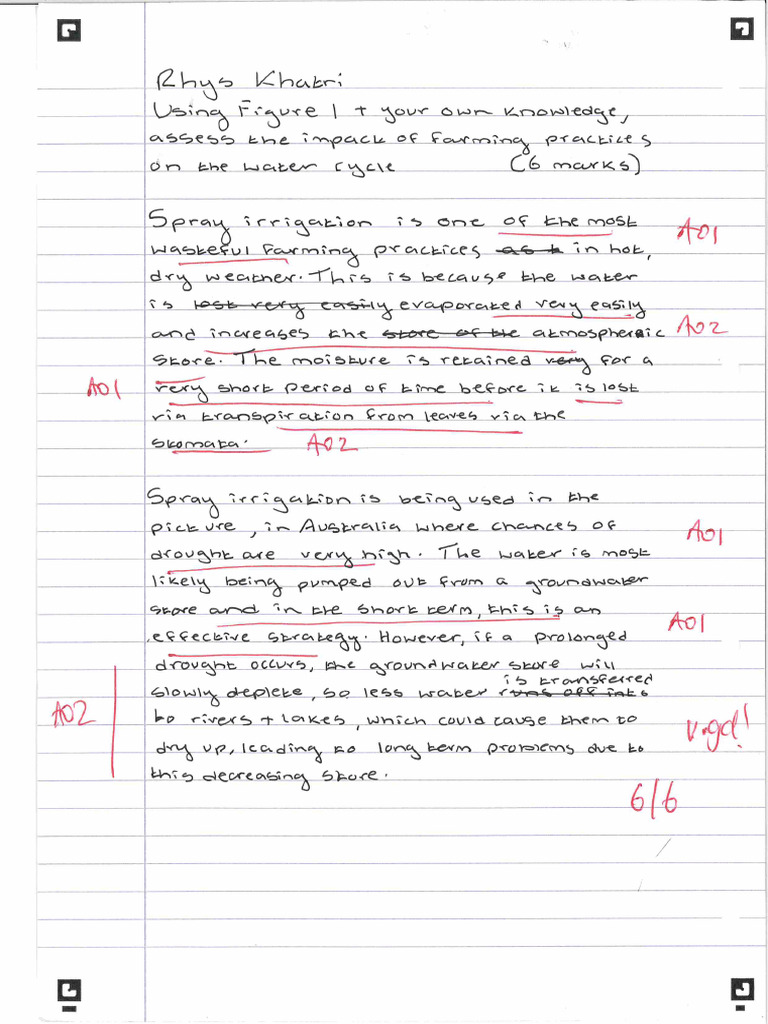 Rhys Khatri
Using Figure 1 + your own knowledge,
assess the impack of farming practices
on the water cycle (6 marks)
Spray irrigation is one of the most A01
wasteful farming practices as t in hot,
dry weather. This is because the water
is lost very easily evaporated very easily
and increases the store of the atmospheric A02
store. The moisture is retained very for a
A01 very short period of time before it is lost
via transpiration from leaves via the
stomata. A02
Spray irrigation is being used in the
picture, in Australia where chances of A01
drought are very high. The water is most
likely being pumped out from a groundwater
store and in the short term, this is an A01
effective strategy. However, if a prolonged
drought occurs, the groundwater store will
is transferred
slowly deplete, so less water runs off into
A02 to rivers + lakes, which could cause them to V.gd!
dry up, leading to long term problems due to
this decreasing store.
6/6